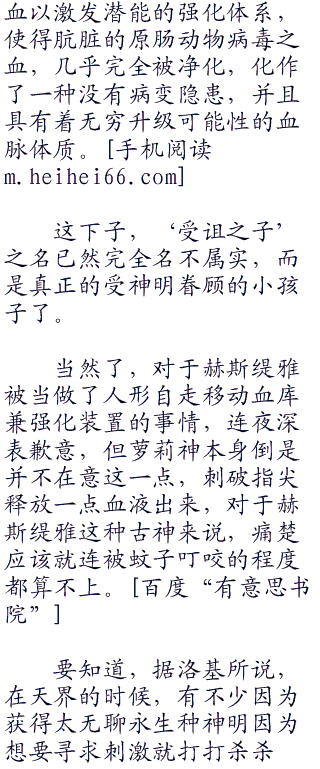 血以激发潜能的强化体系，
使得肮脏的原肠动物病毒之
血，几乎完全被净化，化作
了一种没有病变隐患，并且
具有着无穷升级可能性的血
脉体质。[手机阅读
m.heihei66.com]
这下子，‘受诅之子’
之名已然完全名不属实，而
是真正的受神明眷顾的小孩
子了。
当然了，对于赫斯缇雅
被当做了人形自走移动血库
兼强化装置的事情，连夜深
表歉意，但萝莉神本身倒是
并不在意这一点，刺破指尖
释放一点血液出来，对于赫
斯缇雅这种古神来说，痛楚
应该就连被蚊子叮咬的程度
都算不上。[百度“有意思书
院”]
要知道，据洛基所说，
在天界的时候，有不少因为
获得太无聊永生种神明因为
想要寻求刺激就打打杀杀